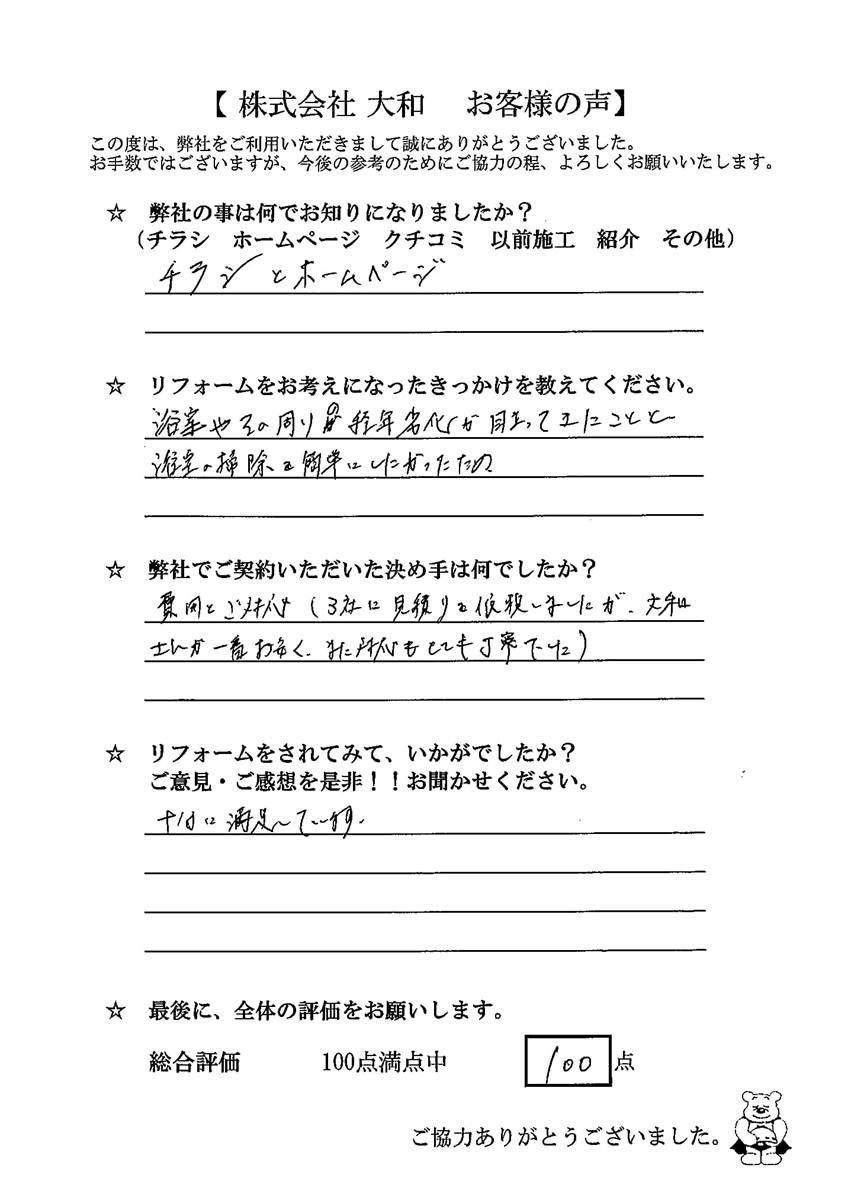 【 株式会社 大和　お客様の声】
この度は、弊社をご利用いただきまして誠にありがとうございました。
お手数ではございますが、今後の参考のためにご協力の程、よろしくお願いいたします。
☆ 弊社の事は何でお知りになりましたか？
（チラシ　ホームページ　クチコミ　以前施工　紹介　その他）
チラシとホームページ
☆ リフォームをお考えになったきっかけを教えてください。
浴室やその周りの経年劣化が目立ってきたことと
浴室の掃除を簡単にしたかったため
☆ 弊社でご契約いただいた決め手は何でしたか？
費用とご対応（3社に見積りを依頼しましたが、大和
さんが一番お安く、また対応もとても丁寧でした）
☆ リフォームをされてみて、いかがでしたか？
ご意見・ご感想を是非！！お聞かせください。
十分に満足しています。
☆ 最後に、全体の評価をお願いします。
総合評価　100点満点中　100 点
ご協力ありがとうございました。